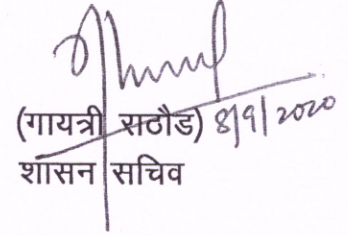 (गायत्री राठौड) 8/9/2020
शासन सचिव